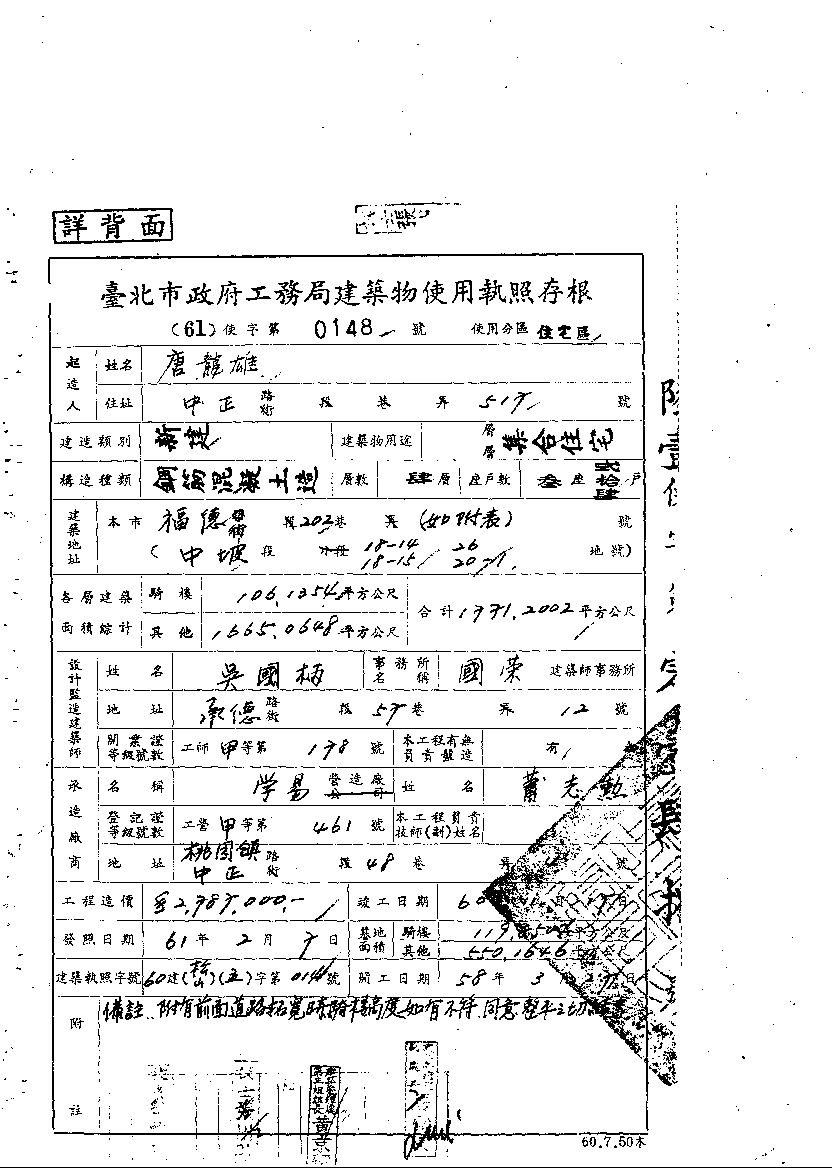 詳背面
號
臺北市政府工務局建築物使用執照存根
(61)使字第 0148 號 使用分區 住宅區
起造人 姓名 唐龍雄
住址 中正 路街 段 巷 弄 517 號
建造類別 新建 建築物用途 層層 集合住宅
構造種類 鋼筋混凝土造 層數 肆層 座戶數 叁座 貳拾肆戶
建築地址 本市 福德 路街 段202巷 弄 (如附表) 號
(中坡 段 小段 18-14 26 地號)
18-15
各層建築面積綜計 騎樓 106.1354平方公尺 合計1771.2002平方公尺
其他 1665.0648平方公尺
設計監造建築師 姓名 吳國柄 事務所名稱 國榮 建築師事務所
地址 承德 路街 段57巷 弄 12 號
開業證等級號數 工師 甲等第 178 號 本工程有無負責監造 有
承造廠商 名稱 学易 營造廠公司 姓名 蕭志勳
登記證等級號數 工營甲等第 461 號 本工程負責技師(副)姓名
地址 桃園鎮中正 路街 段48巷 弄 號
工程造價 $2,787,000.- 竣工日期 60
發照日期 61年 2月 7日 基地面積 騎樓 平方公尺
其他 550.1646平方公尺
建築執照字號 60建(松山)(五)字第 號 開工日期 58年 3月 27日
附註 備註、附有前面道路拓寬時騎樓高度如有不符、同意整平
60.7.50本